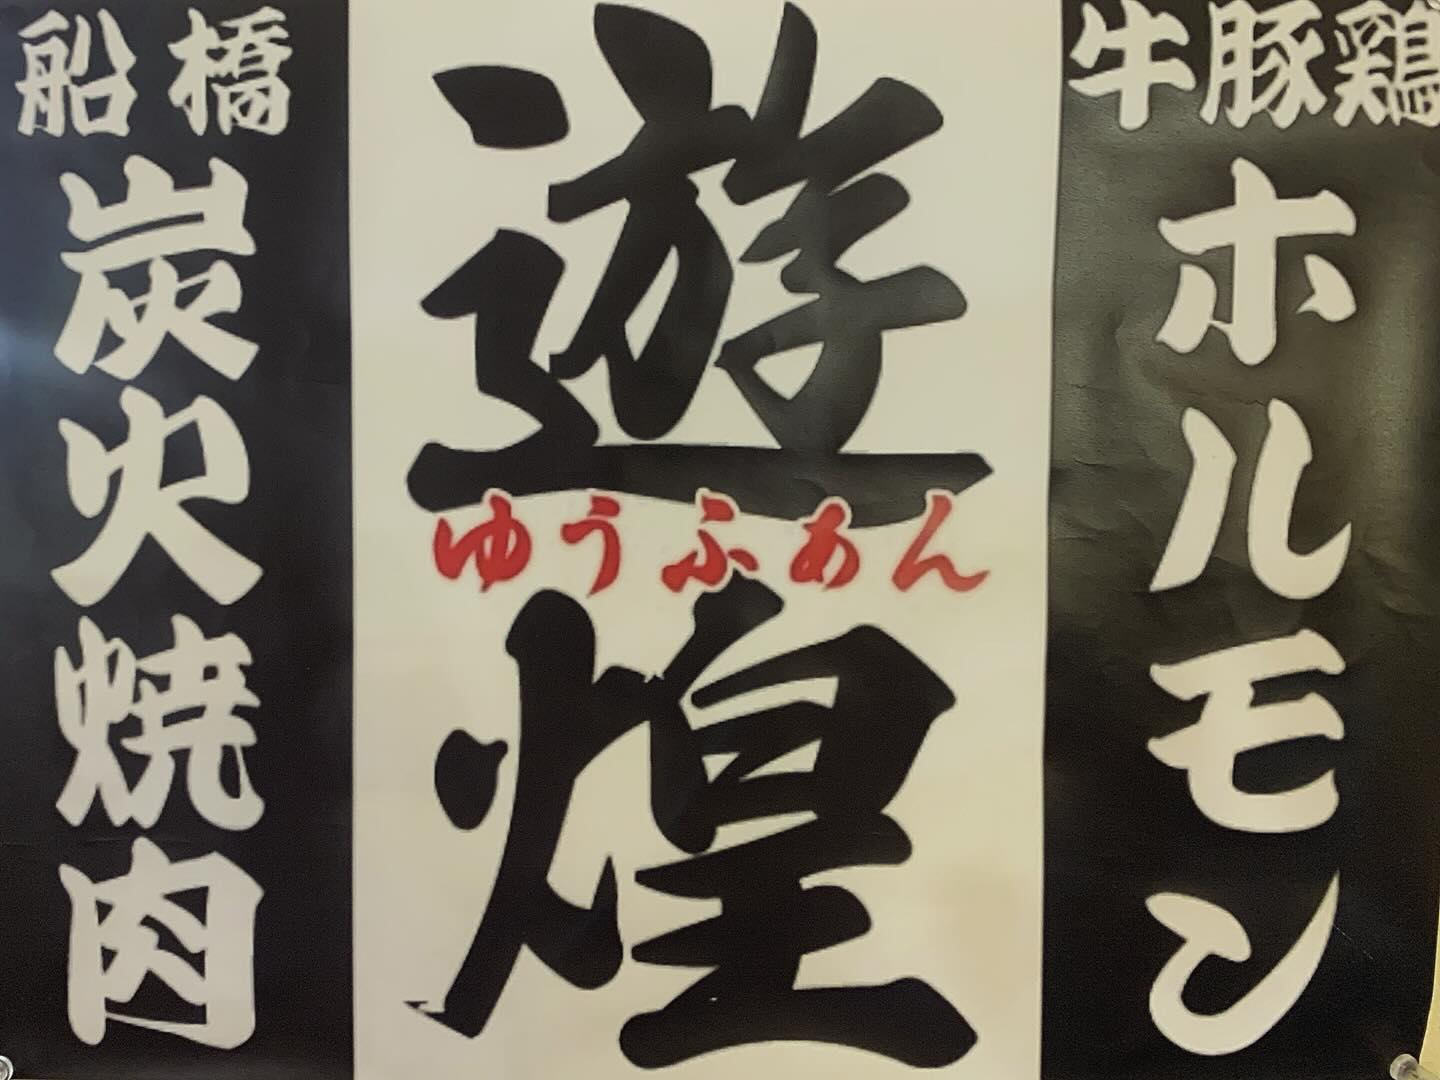 船橋
炭火焼肉
遊煌
ゆうふぁん
牛豚鶏
ホルモン